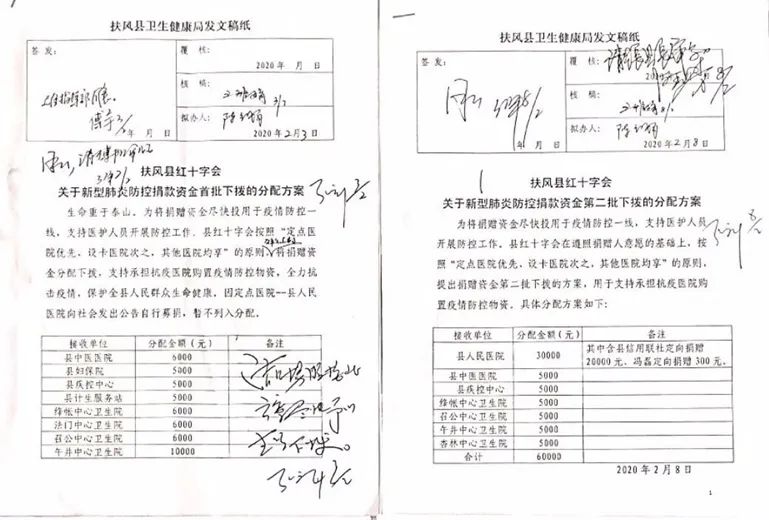 扶风县卫生健康局发文稿纸
签 发:
覆 核:
2020年 月 日
核 稿:
拟办人:
年 月 日
2020年2月3日
扶风县红十字会
关于新型肺炎防控捐款资金首批下拨的分配方案
生命重于泰山。为将捐赠资金尽快投用于疫情防控一
线，支持医护人员开展防控工作。县红十字会按照“定点医
院优先，设卡医院次之，其他医院均享”的原则，将捐赠资
金分配下拨，支持承担抗疫医院购置疫情防控物资，全力抗
击疫情，保护全县人民群众生命健康，因定点医院--县人民
医院向社会发出公告自行募捐，暂不列入分配。
接收单位 分配金额（元） 备注
县中医医院 6000
县妇保院 5000
县疾控中心 5000
县计生服务站 5000
绛帐中心卫生院 6000
法门中心卫生院 6000
召公中心卫生院 6000
午井中心卫生院 10000
扶风县卫生健康局发文稿纸
签 发:
覆 核:
核 稿:
拟办人:
年 月 日
2020年2月8日
扶风县红十字会
关于新型肺炎防控捐款资金第二批下拨的分配方案
为将捐赠资金尽快投用于疫情防控一线，支持医护人员
开展防控工作。县红十字会在遵照捐赠人意愿的基础上，按
照“定点医院优先，设卡医院次之，其他医院均享”的原则，
提出捐赠资金第二批下拨的方案，用于支持承担抗疫医院购
置疫情防控物资。具体分配方案如下：
接收单位 分配金额（元） 备注
县人民医院 30000 其中含县信用联社定向捐赠
20000元、冯磊定向捐赠300元。
县中医医院 5000
县疾控中心 5000
绛帐中心卫生院 5000
召公中心卫生院 5000
午井中心卫生院 5000
杏林中心卫生院 5000
合计 60000
2020年2月8日
1